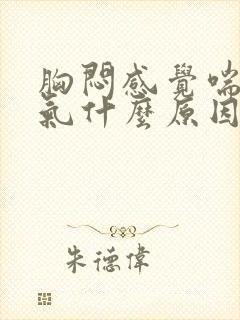 胸悶感覺喘
氣什麼原因
朱德偉